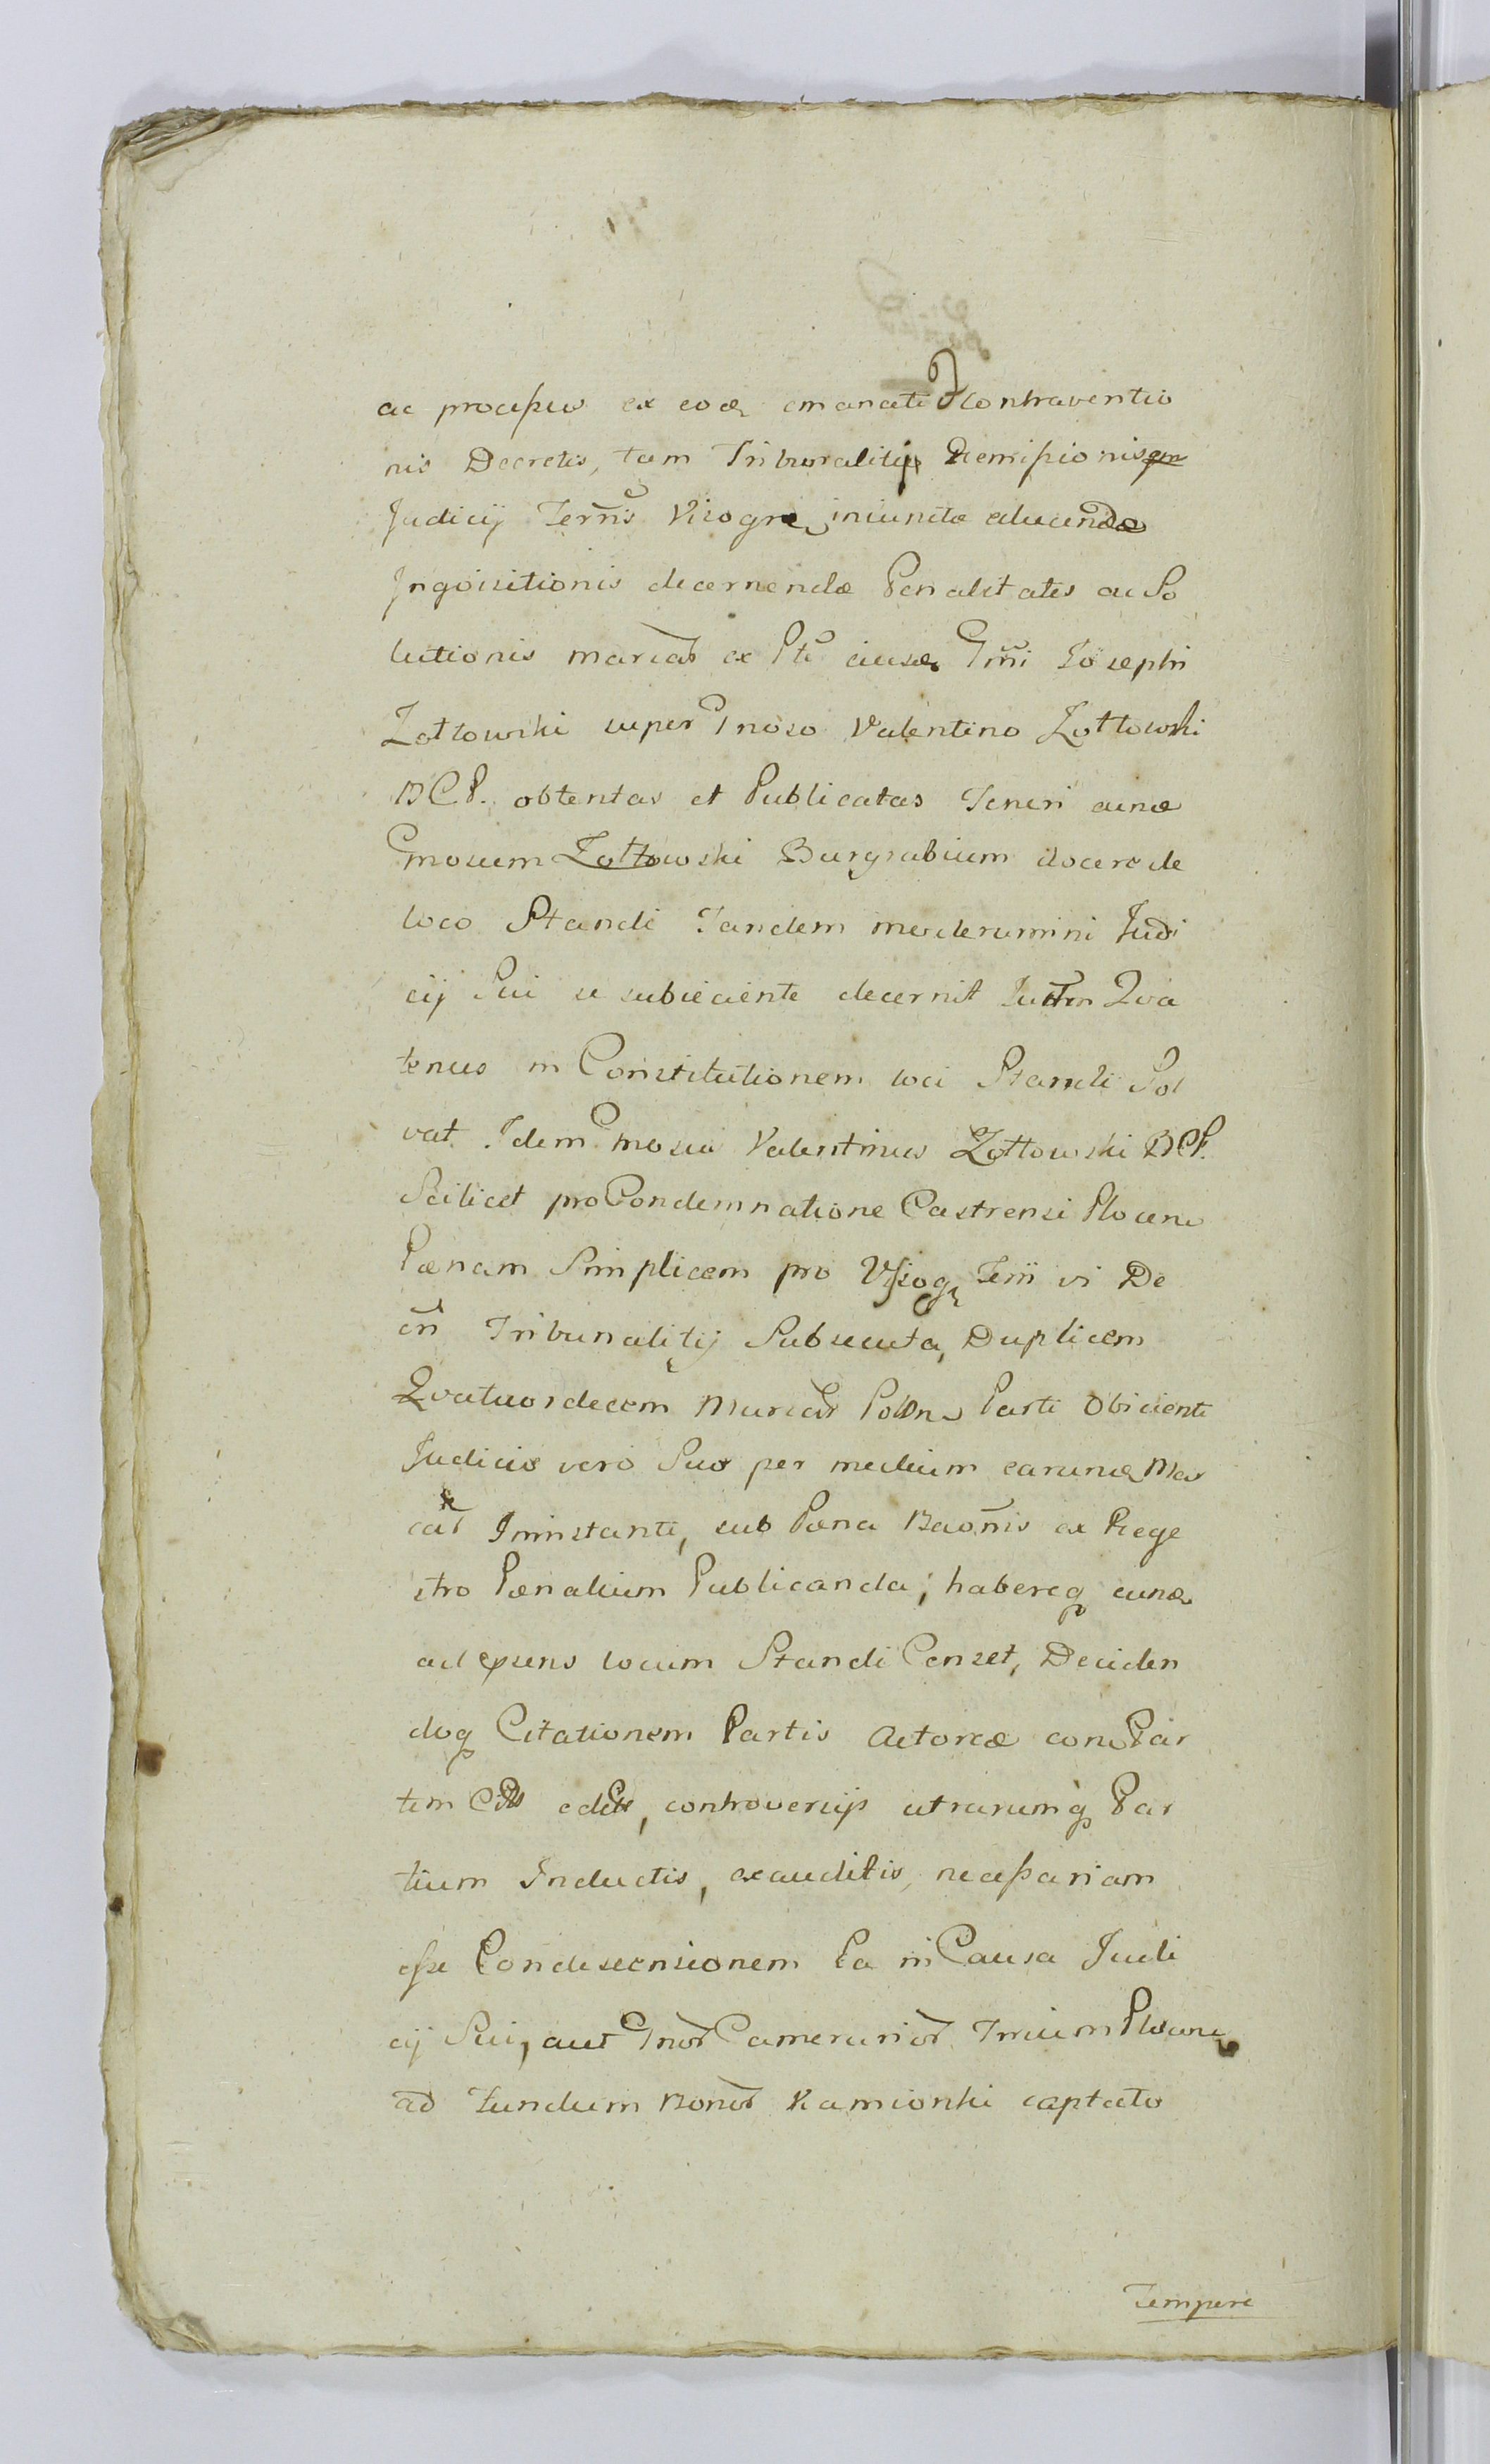 ac processus ex eodē emanati contraventio
nis Decretis, tam Tribunalitijs Remissionis
Judicij Terr̃is Visogrę iniunctæ educendæ
Inqvisitionis decernendæ Penalitates ac So
lutionis marcar̃ ex Ptũ Josephi
Zołtowski super Gnoso Valentino Zołtowski
BCP. obtentas et Publicatas Teneri
Gnosum Zołtowski Burgrabium docere de
loco Standi Tandem moderamini Judi
cij Sui se subiiciente decernit Qva
tenus in Constitutionem loci Standi Sol
vat Idem Gnosus Valentinus Zołtowski BCP.
Scilicet pro Condemnatione Castrensi Plocen
Pænam Simplicem pro Vissogę Terrĩi vi De
cri Tribunalitij Subsecuta, Duplicem
Qvatuordecem Marcar̃ Polon Parti Obiicienti
Judicio vero Suo per medium earundē Mar
car̃ Ininstanti, sub Pæna Bañnis ex Rege
stro Pænalium Publicanda; habereq̢ eundē
ad ꝓsens locum Standi Censet, Deciden
doq̢ Citationem Partis Actoreæ con Par
tem editæ, controversijs utrarumq̢ Par
tium Inductis, exauditis, necessariam
esse Condescensionem Ea in Causa Judi
cij Sui, aut Gnor̃ Camerarior̃ Trrium Plocen
ad Fundum Bonor̃ Kamionki captato
Tempore